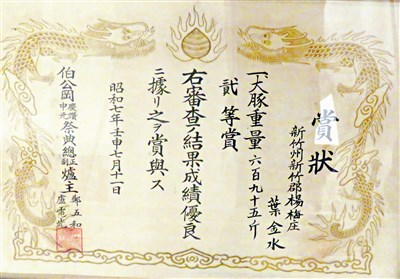 賞狀
新竹州新竹郡楊梅庄
葉金水
一、大豚重量六百九十五斤
貳等賞
右審查ノ結果成績優良
ニ據リ之ヲ賞與ス
昭和七年壬申七月十一日
伯公岡慶讚中元祭典總正副爐主
鄭五和
盧電光